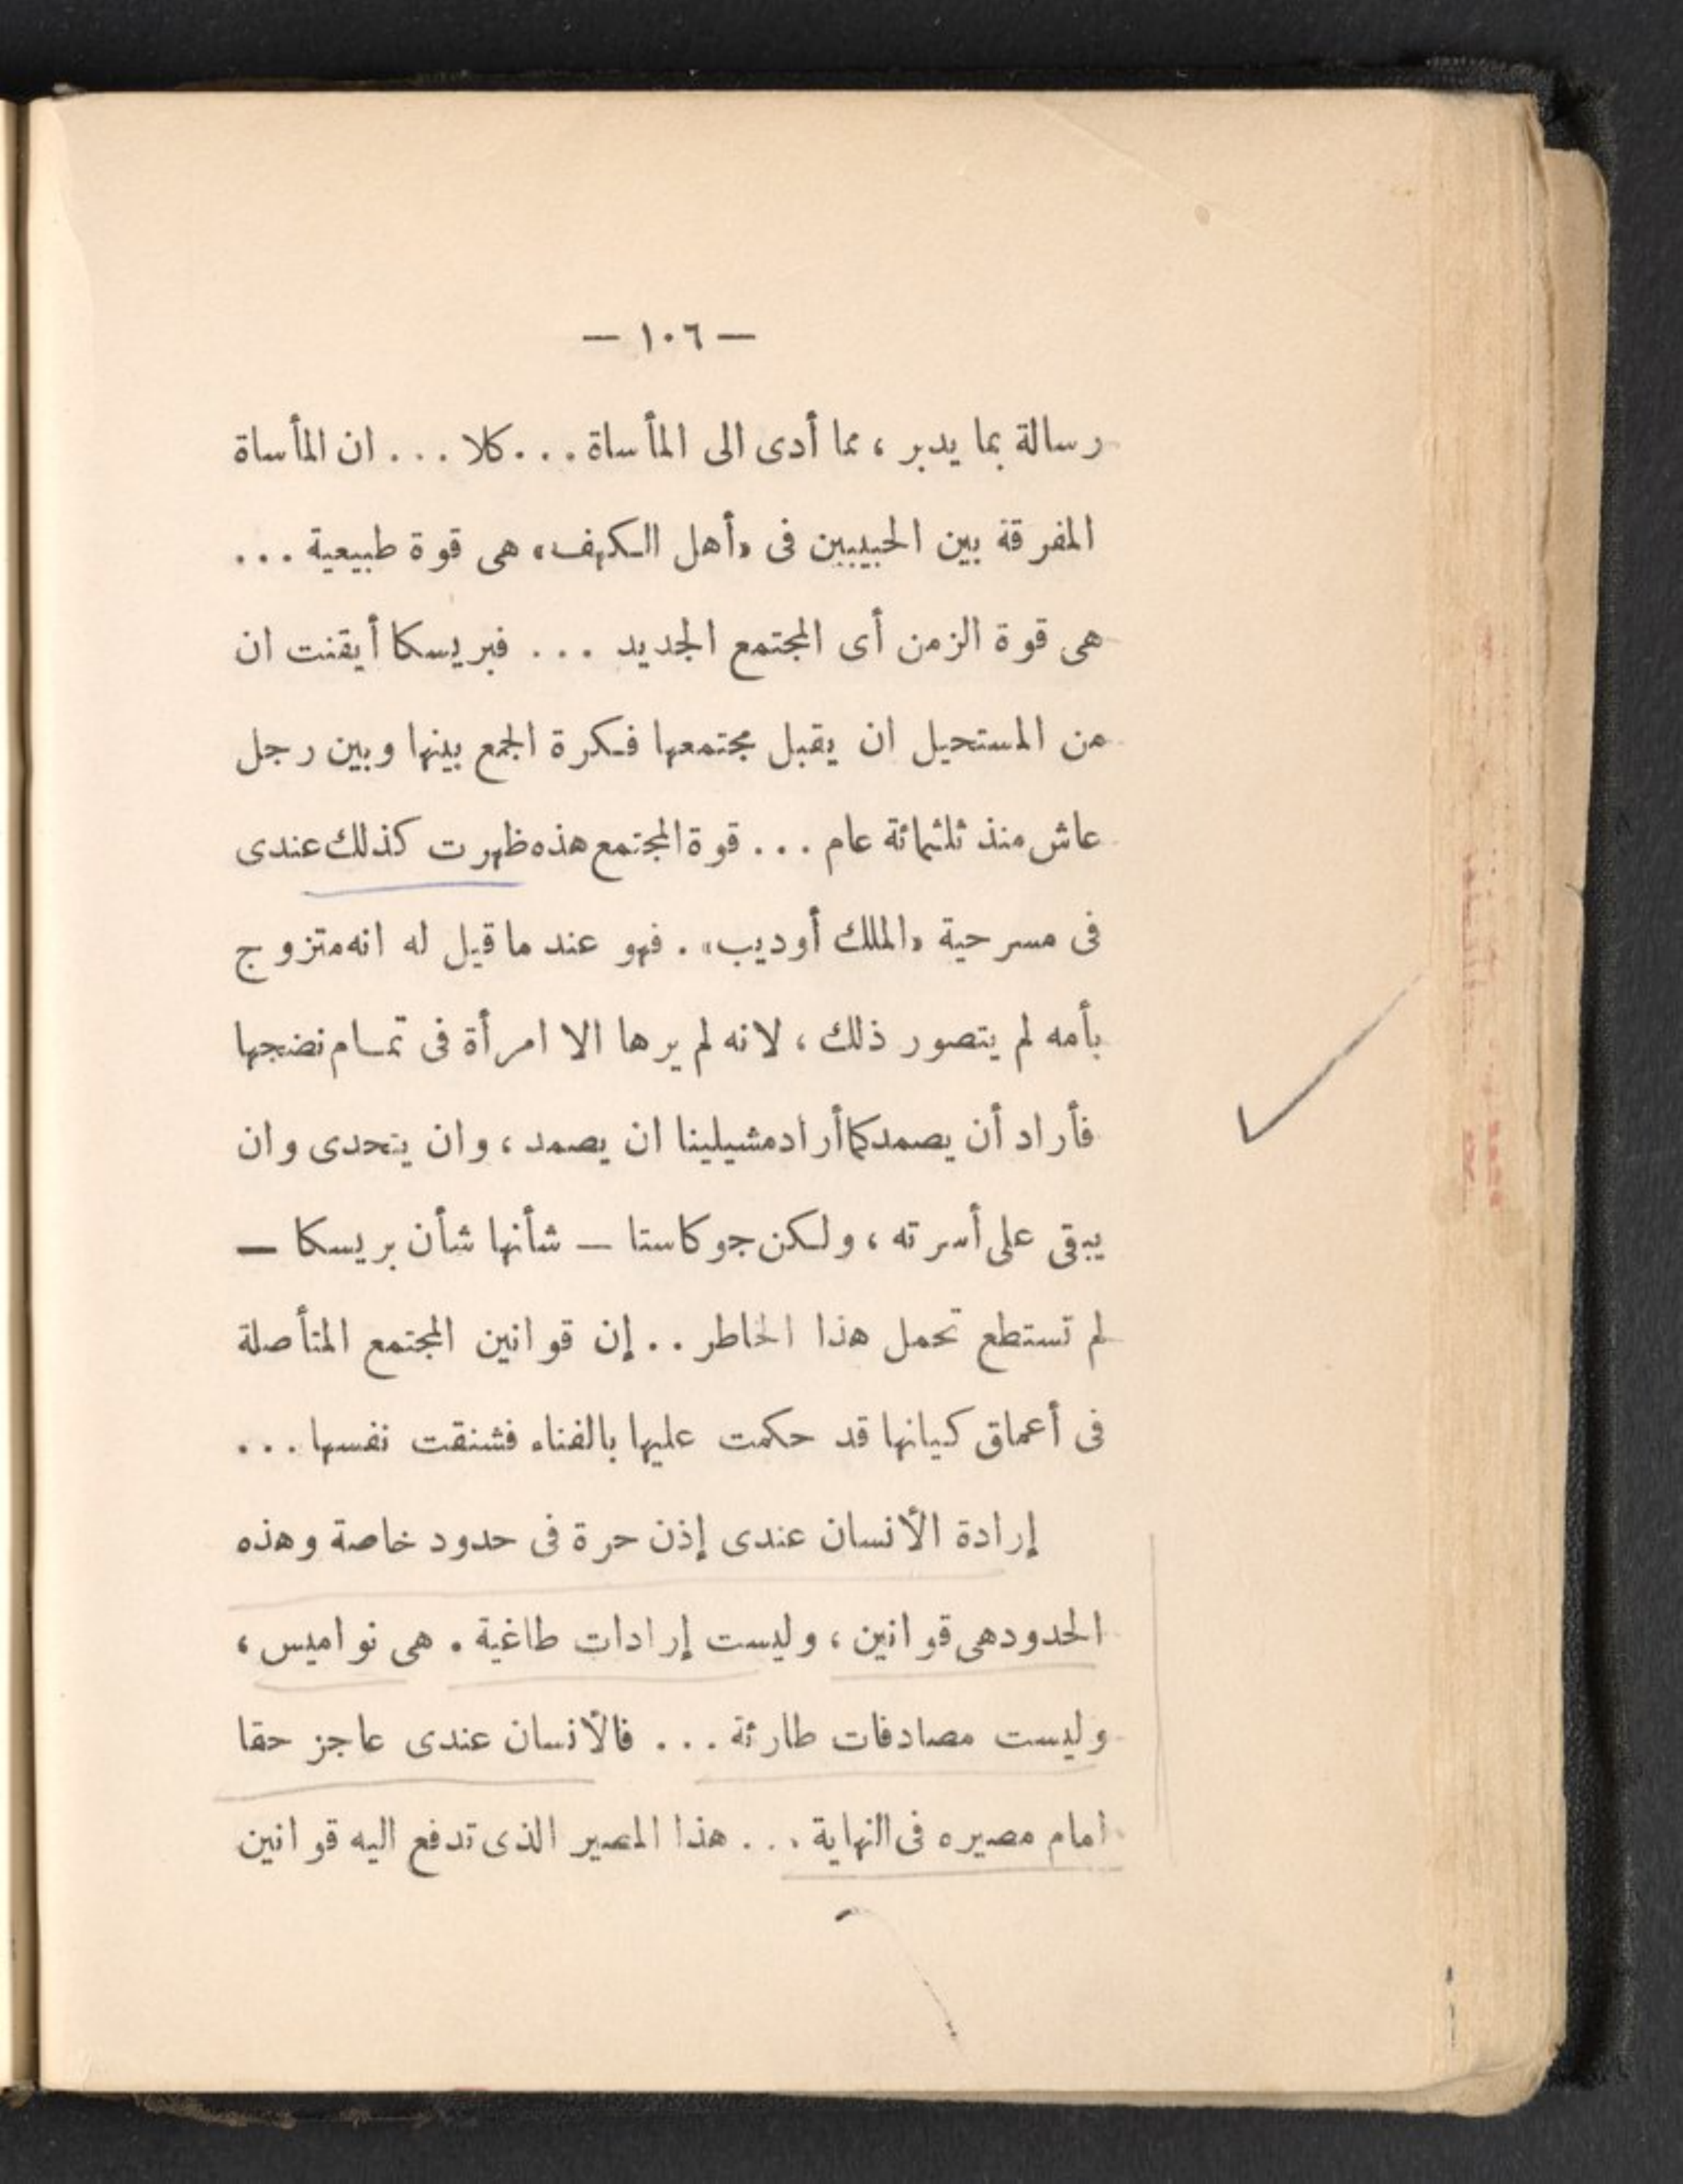 — ١٠٦ —
رسالة بما يدبر ، مما أدى الى المأساة ... كلا ... ان المأساة
المفرقة بين الحبيبين فى «أهل الكهف» هى قوة طبيعية ...
هى قوة الزمن أى المجتمع الجديد ... فبريسكا أيقنت ان
من المستحيل ان يقبل مجتمعها فكرة الجمع بينها وبين رجل
عاش منذ ثلثمائة عام ... قوة المجتمع هذه ظهرت كذلك عندى
فى مسرحية «الملك أوديب» . فهو عند ما قيل له انه متزوج
بأمه لم يتصور ذلك ، لانه لم يرها الا امرأة فى تمام نضجها
فأراد أن يصمد كما أراد مشيلينا ان يصمد ، وان يتحدى وان
يبقى على أسرته ، ولكن جوكاستا — شأنها شأن بريسكا —
لم تستطع تحمل هذا الخاطر .. إن قوانين المجتمع المتأصلة
فى أعماق كيانها قد حكمت عليها بالفناء فشنقت نفسها ...
إرادة الأنسان عندى إذن حرة فى حدود خاصة وهذه
الحدود هى قوانين ، وليست إرادات طاغية . هى نواميس ،
وليست مصادفات طارئة ... فالأنسان عندى عاجز حقا
امام مصيره فى النهاية ... هذا المصير الذى تدفع اليه قوانين